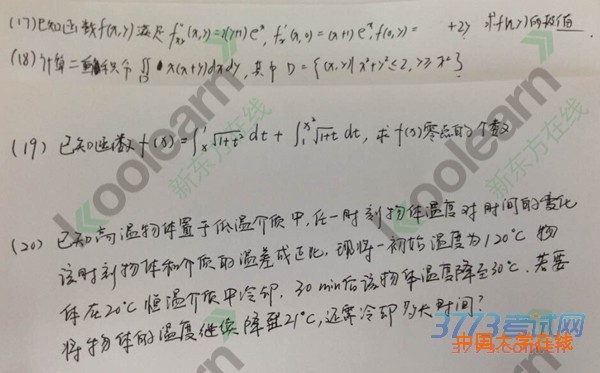 (17)已知函数f(x,y)满足f''xy(x,y)=2(y+1)e^x, f'x(x,0)=(x+1)e^x, f(0,y)= +2y 求f(x,y)的极值
(18)计算二重积分∬D x(x+y)dxdy,其中D={(x,y)|x²+y²≤2,y≥x²}
(19)已知函数f(x)=∫x^1 √1+t² dt+∫1^x² √1+t dt,求f(x)零点的个数
(20)已知高温物体置于低温介质中,任一时刻物体温度对时间的变化
该时刻物体和介质的温差成正比,现将一初始温度为120℃物
体在20℃恒温介质中冷却,30min后该物体温度降至30℃,若要
将物体的温度继续降至21℃,还需冷却多长时间?
koolearn
新东方在线
koolearn
新东方在线
koolearn
新东方在线
3773考试网
中国大学在线